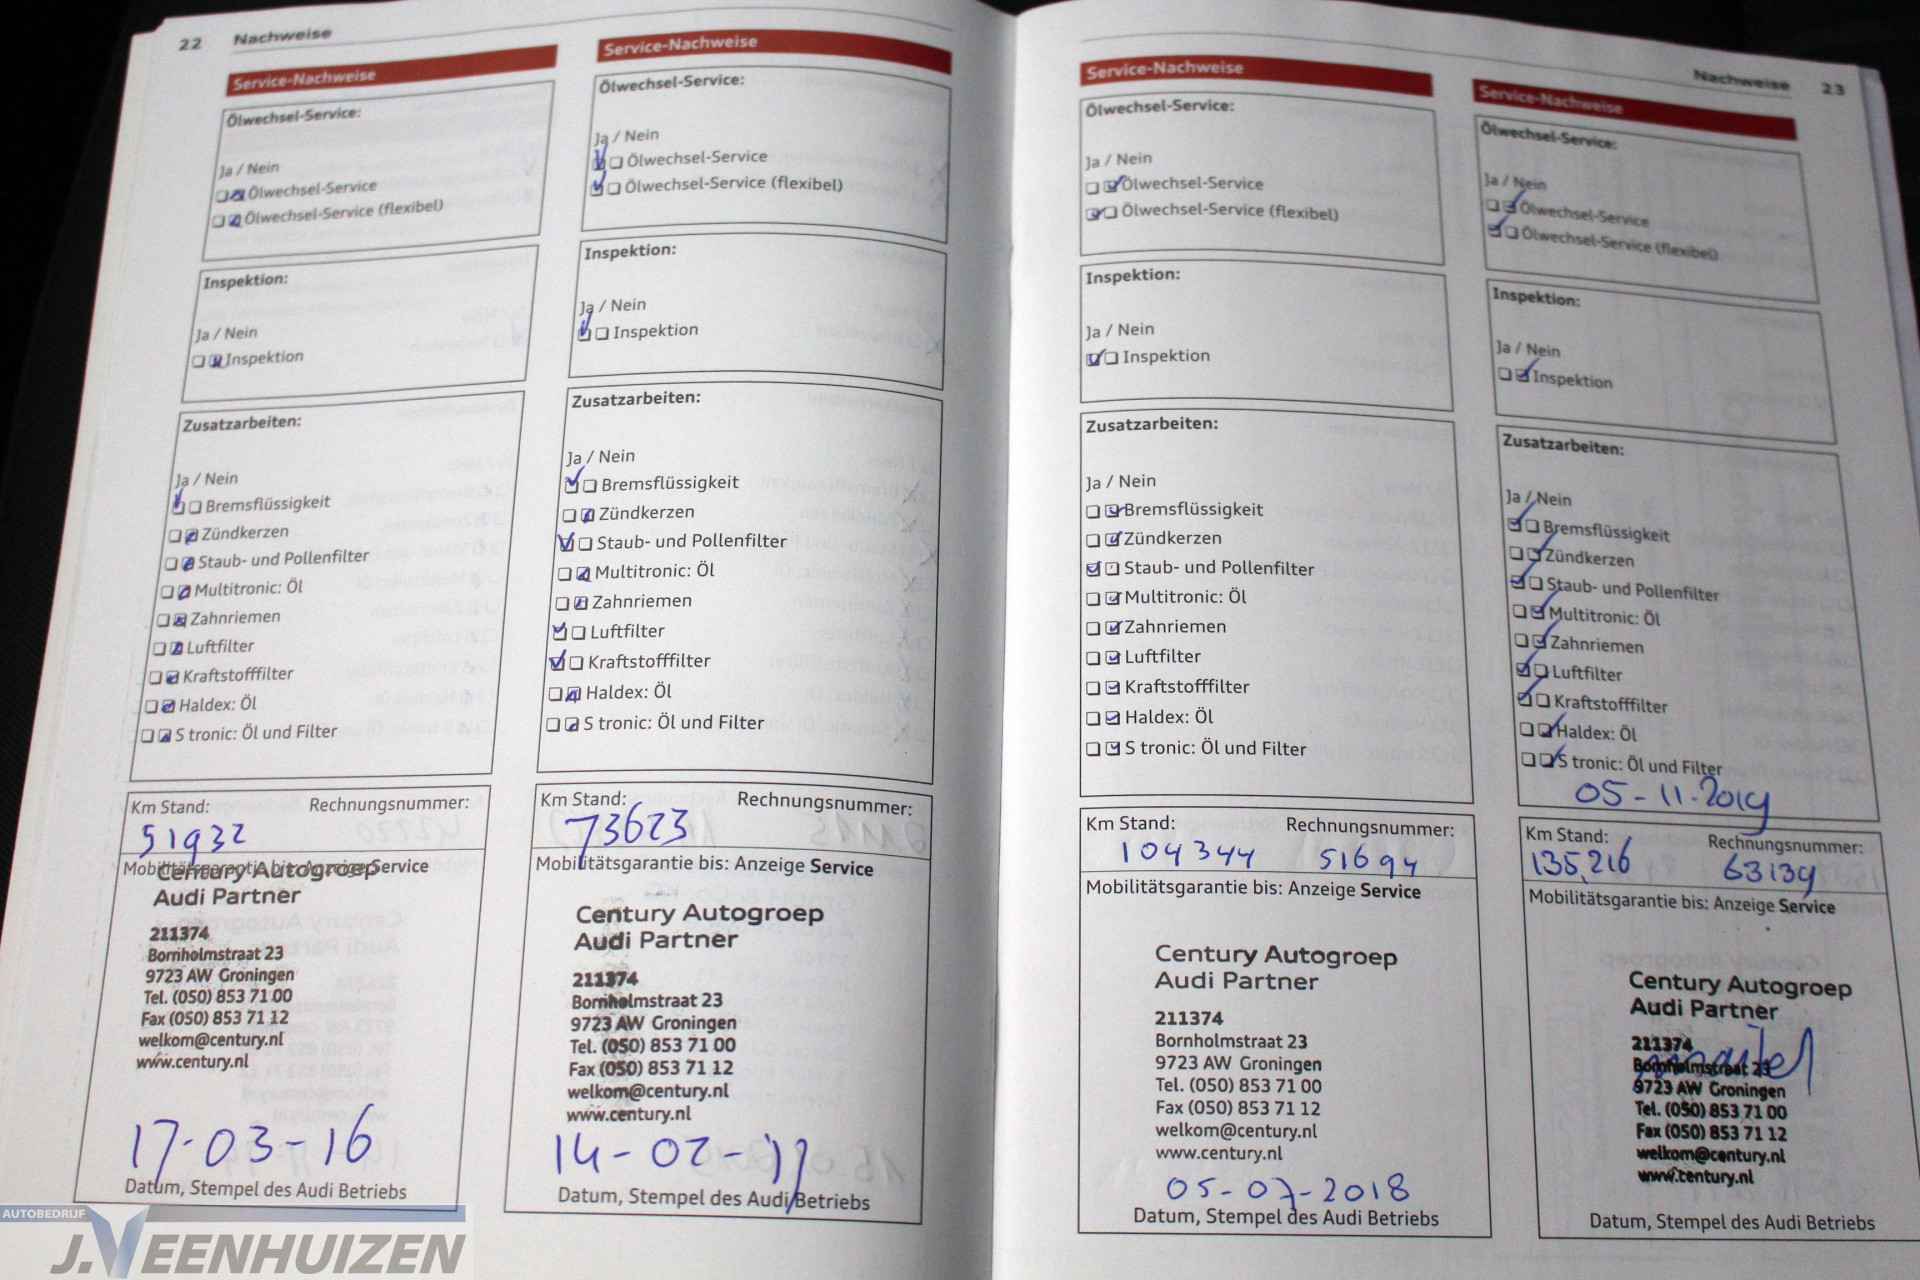 22 Nachweise
Service-Nachweise
Ölwechsel-Service:
Ja / Nein
Ölwechsel-Service
Ölwechsel-Service (flexibel)
Inspektion:
Ja / Nein
Inspektion
Zusatzarbeiten:
Ja / Nein
Bremsflüssigkeit
Zündkerzen
Staub- und Pollenfilter
Multitronic: Öl
Zahnriemen
Luftfilter
Kraftstofffilter
Haldex: Öl
S tronic: Öl und Filter
Km Stand: Rechnungsnummer:
51932
Mobilitätsgarantie bis: Anzeige Service
Century Autogroep
Audi Partner
211374
Bornholmstraat 23
9723 AW Groningen
Tel. (050) 853 71 00
Fax (050) 853 71 12
welkom@century.nl
www.century.nl
17-03-16
Datum, Stempel des Audi Betriebs
Service-Nachweise
Ölwechsel-Service:
Ja / Nein
Ölwechsel-Service
Ölwechsel-Service (flexibel)
Inspektion:
Ja / Nein
Inspektion
Zusatzarbeiten:
Ja / Nein
Bremsflüssigkeit
Zündkerzen
Staub- und Pollenfilter
Multitronic: Öl
Zahnriemen
Luftfilter
Kraftstofffilter
Haldex: Öl
S tronic: Öl und Filter
Km Stand: Rechnungsnummer:
73623
Mobilitätsgarantie bis: Anzeige Service
Century Autogroep
Audi Partner
211374
Bornholmstraat 23
9723 AW Groningen
Tel. (050) 853 71 00
Fax (050) 853 71 12
welkom@century.nl
www.century.nl
14-02-'17
Datum, Stempel des Audi Betriebs
Service-Nachweise
Ölwechsel-Service:
Ja / Nein
Ölwechsel-Service
Ölwechsel-Service (flexibel)
Inspektion:
Ja / Nein
Inspektion
Zusatzarbeiten:
Ja / Nein
Bremsflüssigkeit
Zündkerzen
Staub- und Pollenfilter
Multitronic: Öl
Zahnriemen
Luftfilter
Kraftstofffilter
Haldex: Öl
S tronic: Öl und Filter
Km Stand: Rechnungsnummer:
104344 51694
Mobilitätsgarantie bis: Anzeige Service
Century Autogroep
Audi Partner
211374
Bornholmstraat 23
9723 AW Groningen
Tel. (050) 853 71 00
Fax (050) 853 71 12
welkom@century.nl
www.century.nl
05-07-2018
Datum, Stempel des Audi Betriebs
Nachweise 23
Service-Nachweise
Ölwechsel-Service:
Ja / Nein
Ölwechsel-Service
Ölwechsel-Service (flexibel)
Inspektion:
Ja / Nein
Inspektion
Zusatzarbeiten:
Ja / Nein
Bremsflüssigkeit
Zündkerzen
Staub- und Pollenfilter
Multitronic: Öl
Zahnriemen
Luftfilter
Kraftstofffilter
Haldex: Öl
S tronic: Öl und Filter
05-11-2019
Km Stand: Rechnungsnummer:
135,216 63139
Mobilitätsgarantie bis: Anzeige Service
Century Autogroep
Audi Partner
211374
Bornholmstraat 23
9723 AW Groningen
Tel. (050) 853 71 00
Fax (050) 853 71 12
welkom@century.nl
www.century.nl
Datum, Stempel des Audi Betriebs
AUTOBEDRIJF
J.VEENHUIZEN